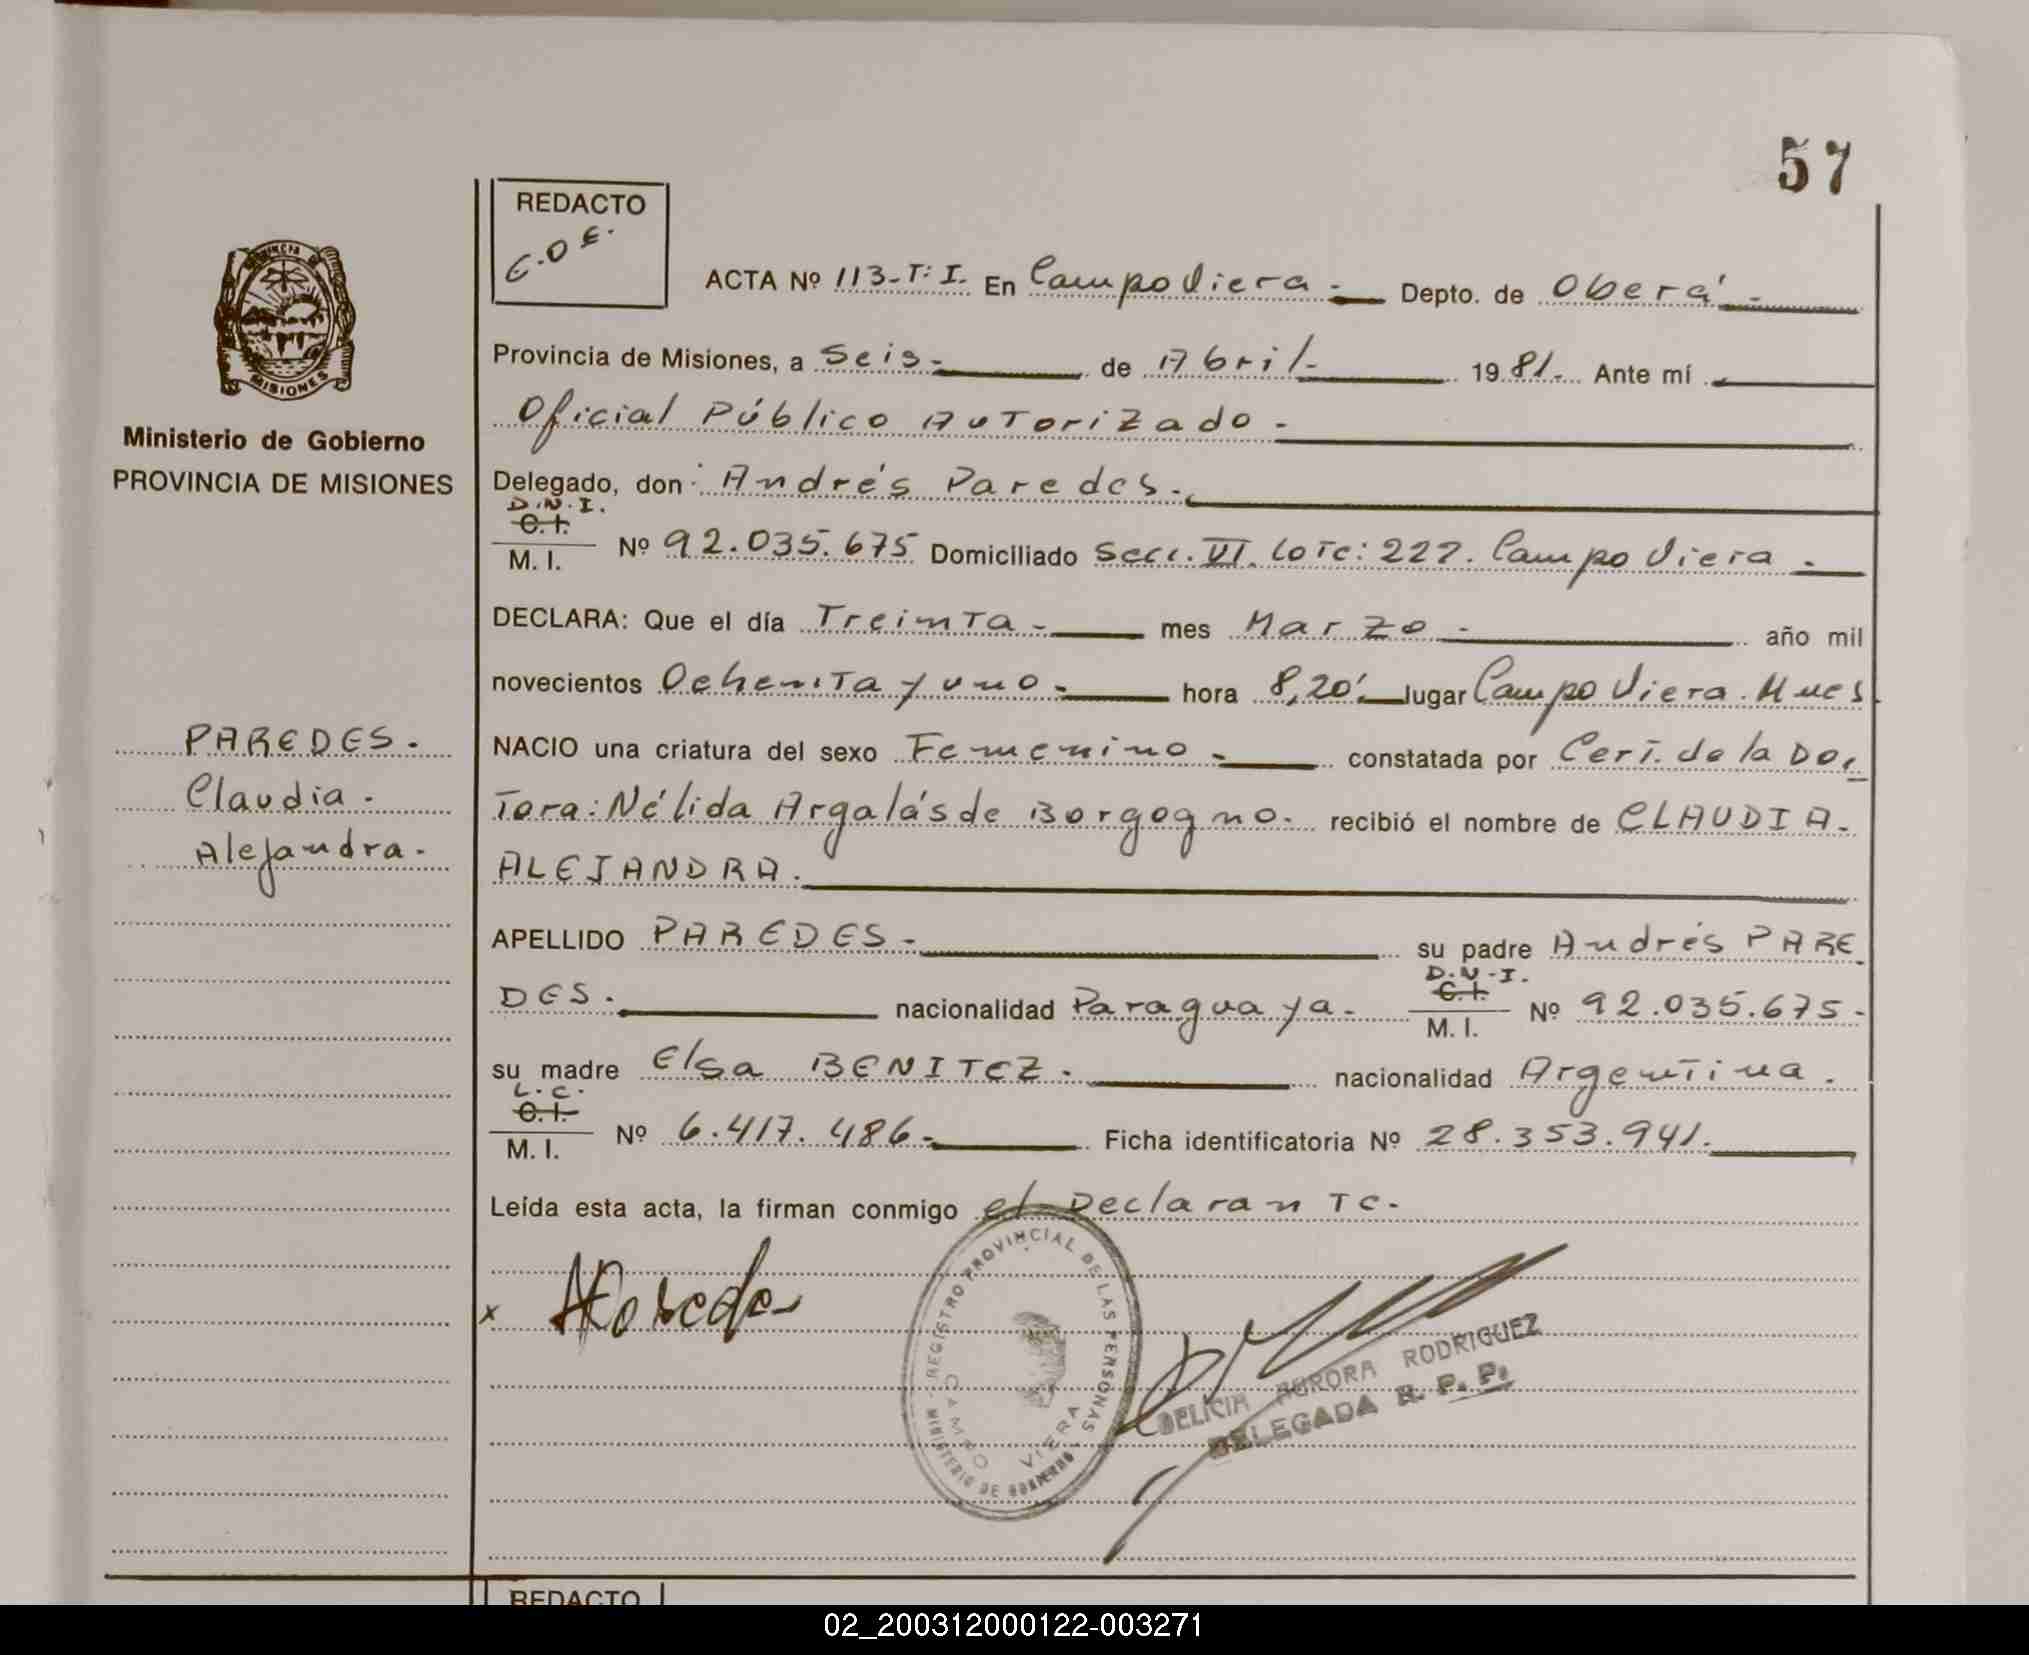 57
REDACTO
E.O.E.
ACTA Nº 113-T: I. En Campo Viera.- Depto. de Oberá.-
Provincia de Misiones, a Seis.- de Abril.- 1981.- Ante mí
Oficial Público Autorizado.-
Delegado, don: Andrés Paredes.-
D.N.I.
C.I.
M. I. Nº 92.035.675 Domiciliado Secc. VI. Lote: 227. Campo Viera.-
DECLARA: Que el día Treinta.- mes Marzo.- año mil
novecientos Ochenta y uno.- hora 8,20'.- lugar Campo Viera. Mnes
NACIO una criatura del sexo Femenino.- constatada por Cert. de la Doc
tora: Nélida Argalás de Borgogno. recibió el nombre de CLAUDIA.
ALEJANDRA.
APELLIDO PAREDES.- su padre Andrés PARE
DES. nacionalidad Paraguaya.-
D.N.I.
C.I.
M. I. Nº 92.035.675.-
su madre Elsa BENITEZ. nacionalidad Argentina.
L.C.
C.I.
M. I. Nº 6.417.486.- Ficha identificatoria Nº 28.353.941.
Leída esta acta, la firman conmigo el Declarante.
x AParedes
REGISTRO PROVINCIAL DE LAS PERSONAS
MINISTERIO DE GOBIERNO
CAMPO VIERA
DELICIA AURORA RODRIGUEZ
DELEGADA R. P. P.
PROVINCIA DE
MISIONES
Ministerio de Gobierno
PROVINCIA DE MISIONES
PAREDES.
Claudia.
Alejandra.
REDACTO
02_200312000122-003271